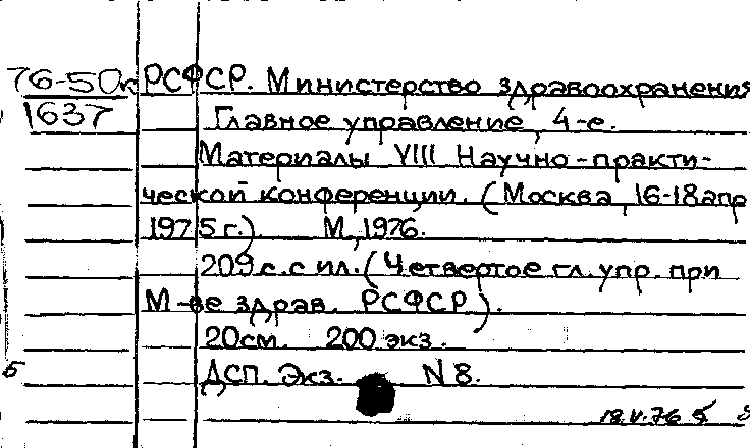 76-50к РСФСР. Министерство здравоохранения
1637 Главное управление, 4-е.
Материалы VIII Научно-практи-
ческой конференции. (Москва, 16-18 апр
1975 г.) М., 1976.
209 с. с ил. (Четвертое гл. упр. при
М-ве здрав. РСФСР).
20 см. 200 экз.
Б ДСП. Экз. N 8.
18.V.76 5